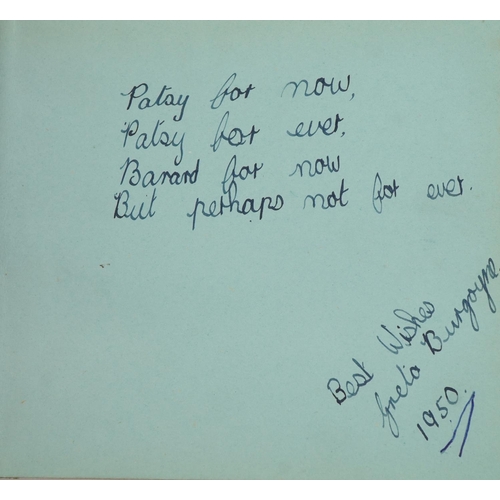 Patsy for now,
Patsy for ever,
Barard for now
But perhaps not for ever.
Best Wishes
Greta Burgoyne.
1950.